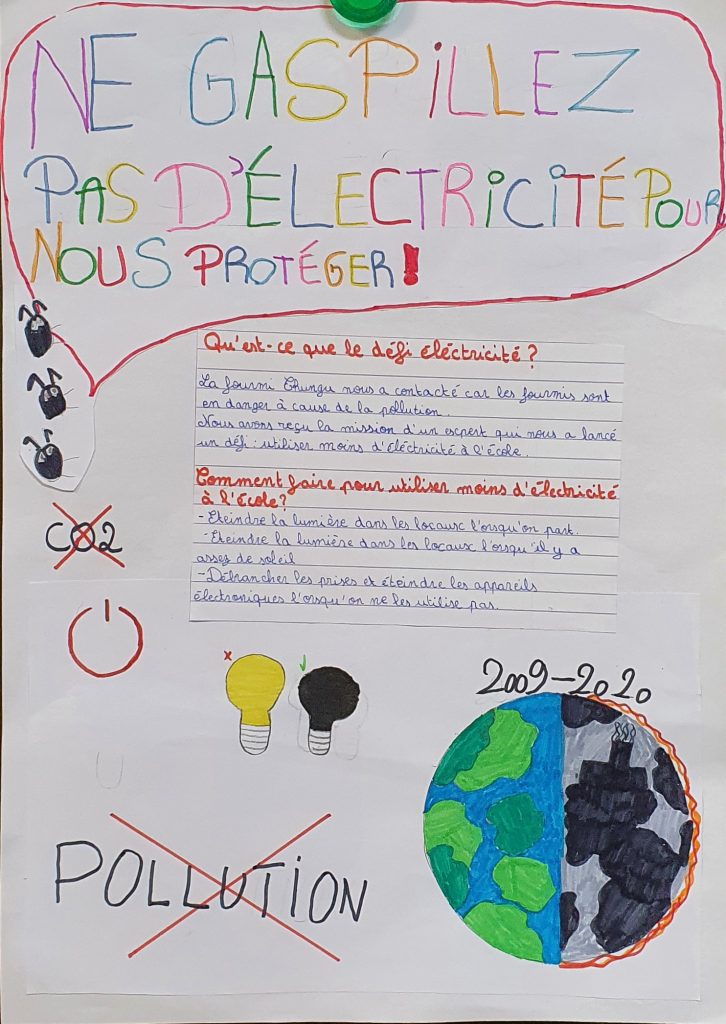 NE GASPILLEZ
PAS D'ÉLECTRICITÉ POUR
NOUS PROTÉGER !
Qu'est-ce que le défi éléctricité ?
La fourmi Chungu nous a contacté car les fourmis sont
en danger à cause de la pollution.
Nous avons reçu la mission d'un expert qui nous a lancé
un défi : utiliser moins d'éléctricité à l'école.
Comment faire pour utiliser moins d'électricité
à l'école?
- Eteindre la lumière dans les locaux l'orsqu'on part.
- Eteindre la lumière dans les locaux l'orsqu'il y a
assez de soleil
- Débrancher les prises et éteindre les appareils
électroniques l'orsqu'on ne les utilise pas.
CO2
2009-2020
POLLUTION